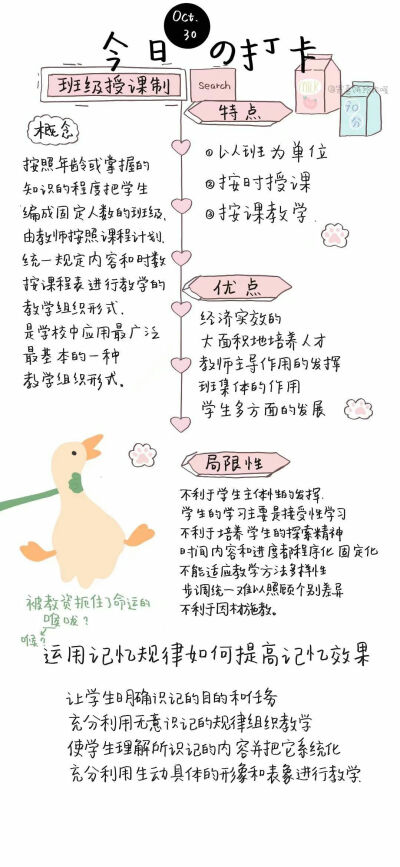 Oct.
30
今日の打卡
班级授课制
Search
概念
按照年龄或掌握的
知识的程度把学生
编成固定人数的班级.
由教师按照课程计划.
统一规定内容和时数
按课程表进行教学的
教学组织形式.
是学校中应用最广泛
最基本的一种
教学组织形式。
特点
①以人班为单位
②按时授课
③按课教学.
MILK
优点
经济实效的
大面积地培养人才
教师主导作用的发挥
班集体的作用
学生多方面的发展
局限性
不利于学生主体性的发挥.
学生的学习主要是接受性学习
不利于培养学生的探索精神
时间内容和进度都程序化 固定化
不能适应教学方法多样性
步调统一难以照顾个别差异
不利于因材施教。
被教资扼住了命运的
喉咙？
喉？
运用记忆规律如何提高记忆效果
让学生明确识记的目的和任务
充分利用无意识记的规律组织教学
使学生理解所识记的内容并把它系统化
充分利用生动具体的形象和表象进行教学.